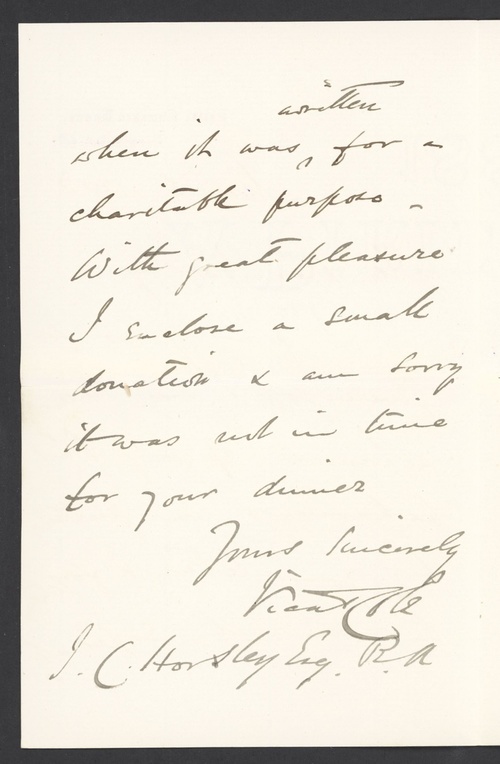 written
when it was ‸ for a
charitable purpose -
With great pleasure
I enclose a small
donation & am sorry
it was not in time
for your dinner
Yours Sincerely
Vicat Cole
J. C. Horsley Esq. R. A